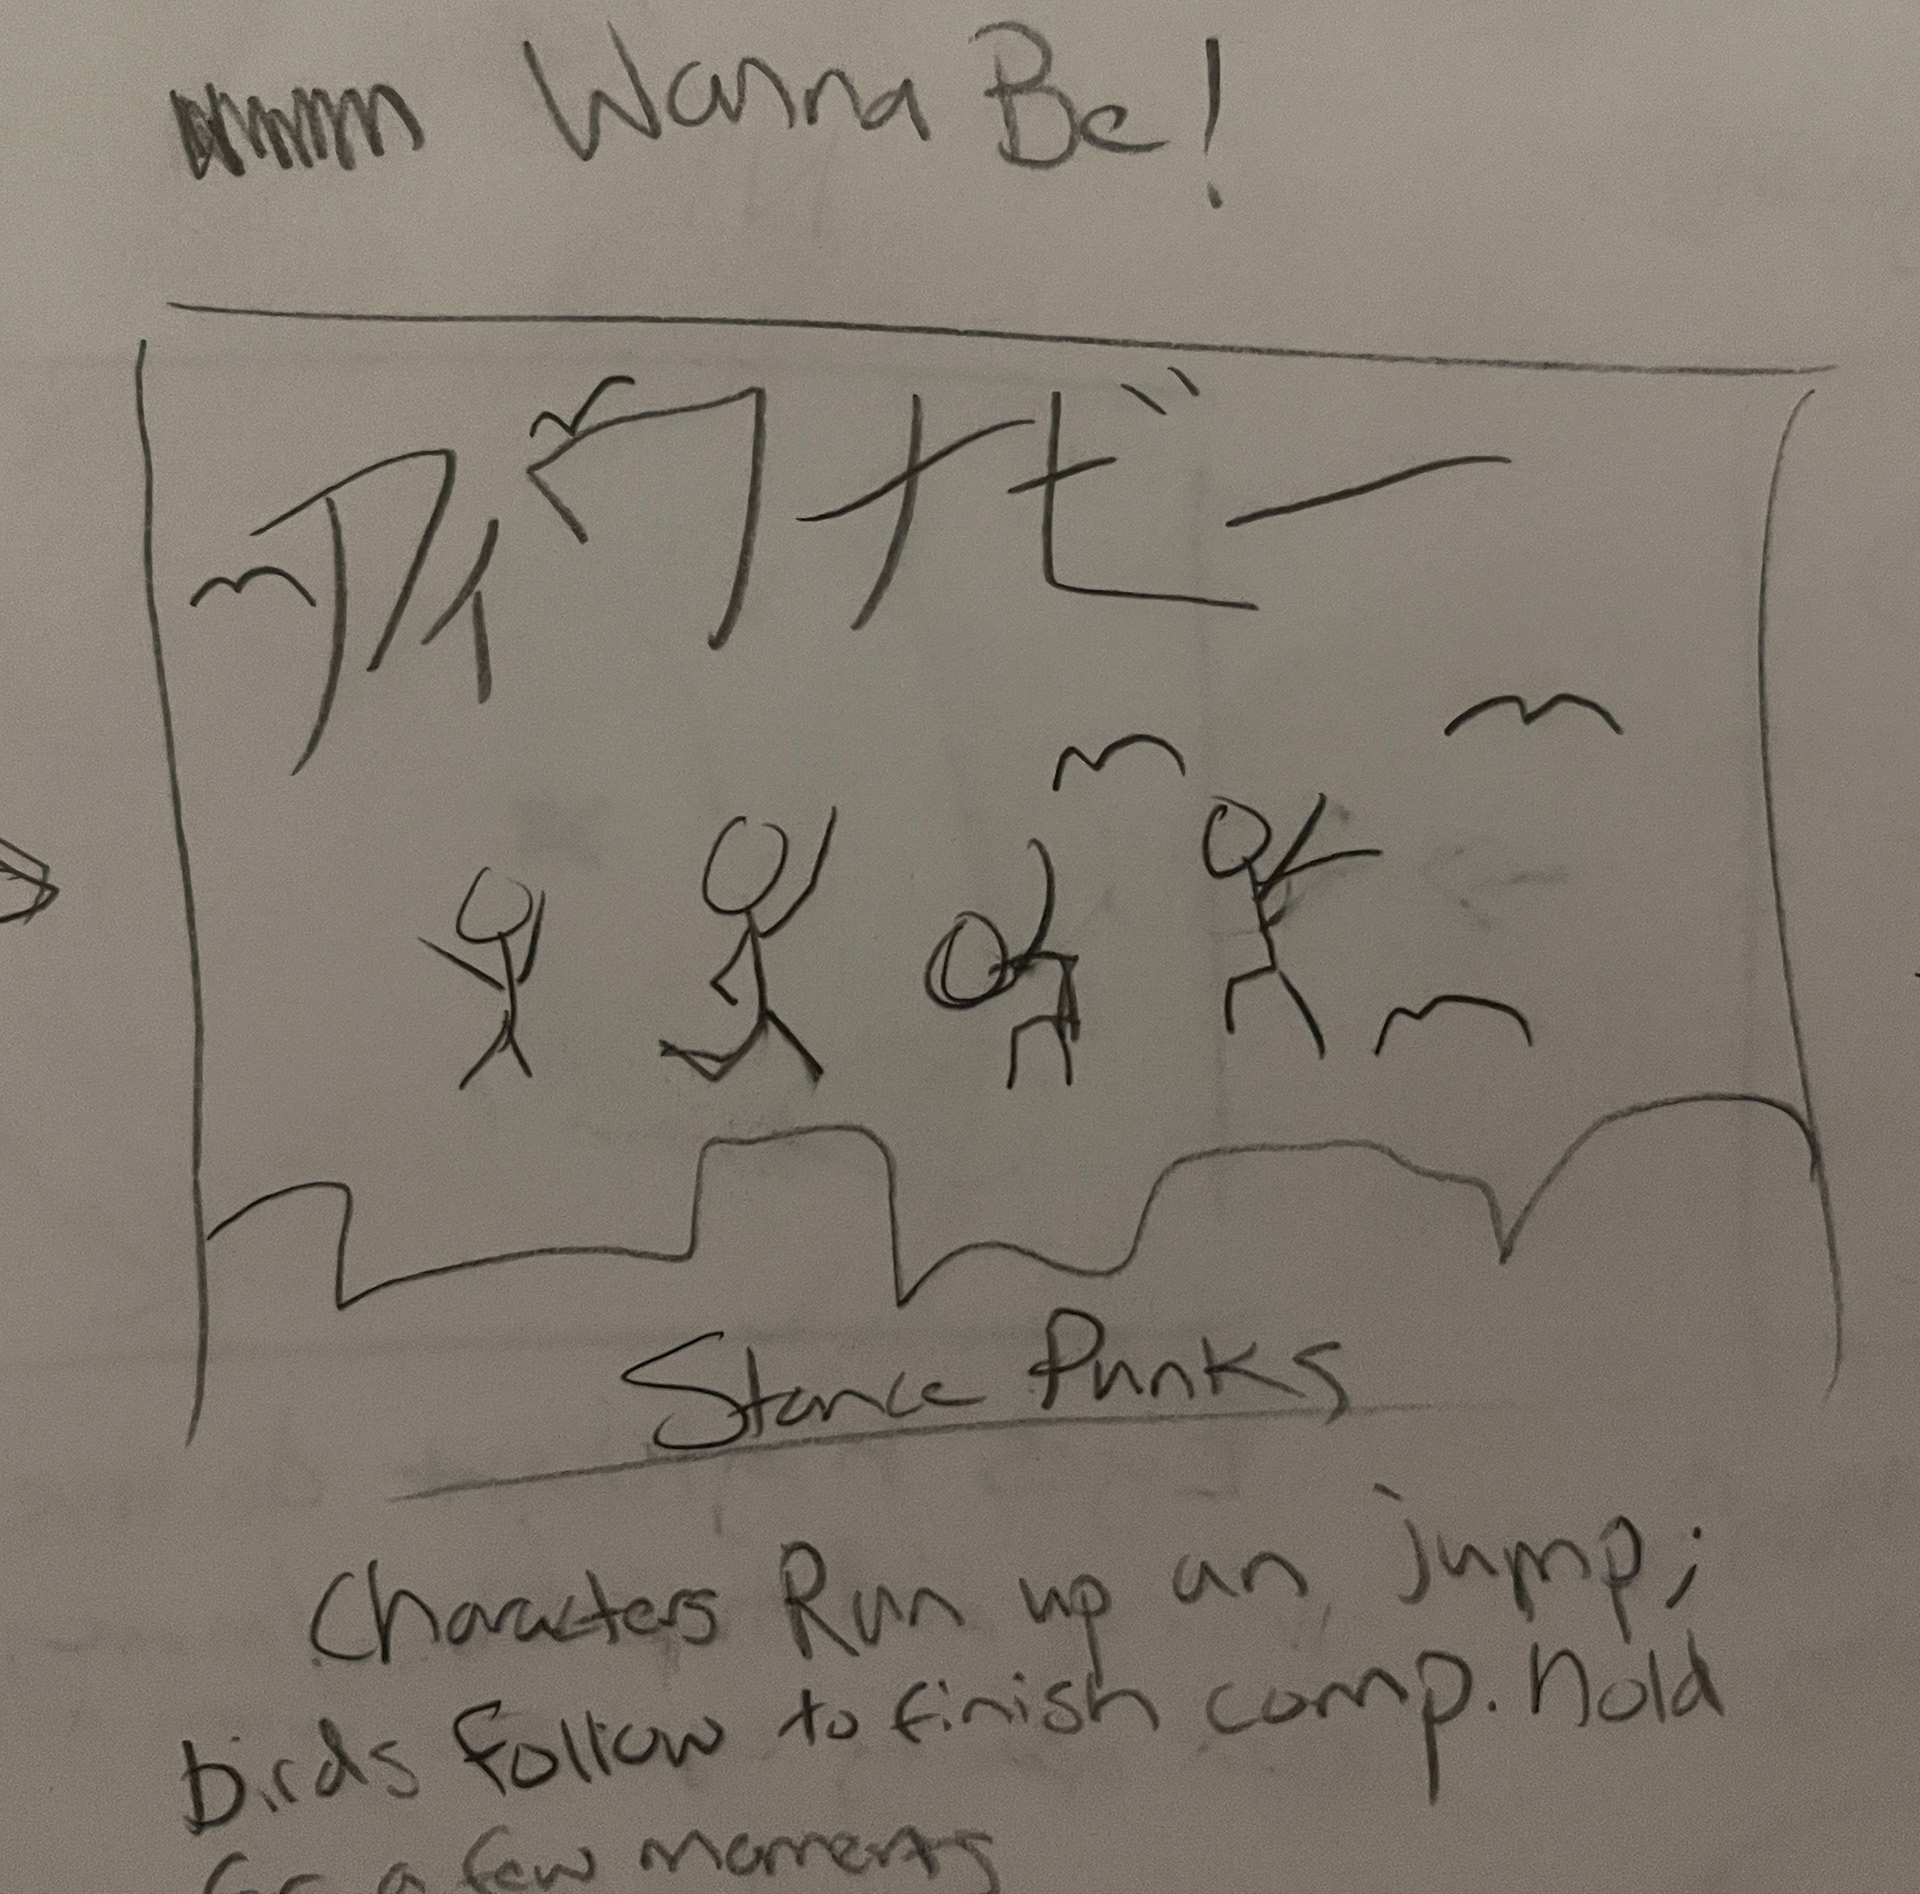 Wanna Be!
アイワナビー
Stance Punks
Characters Run up an jump;
birds follow to finish comp. hold
for a few moments